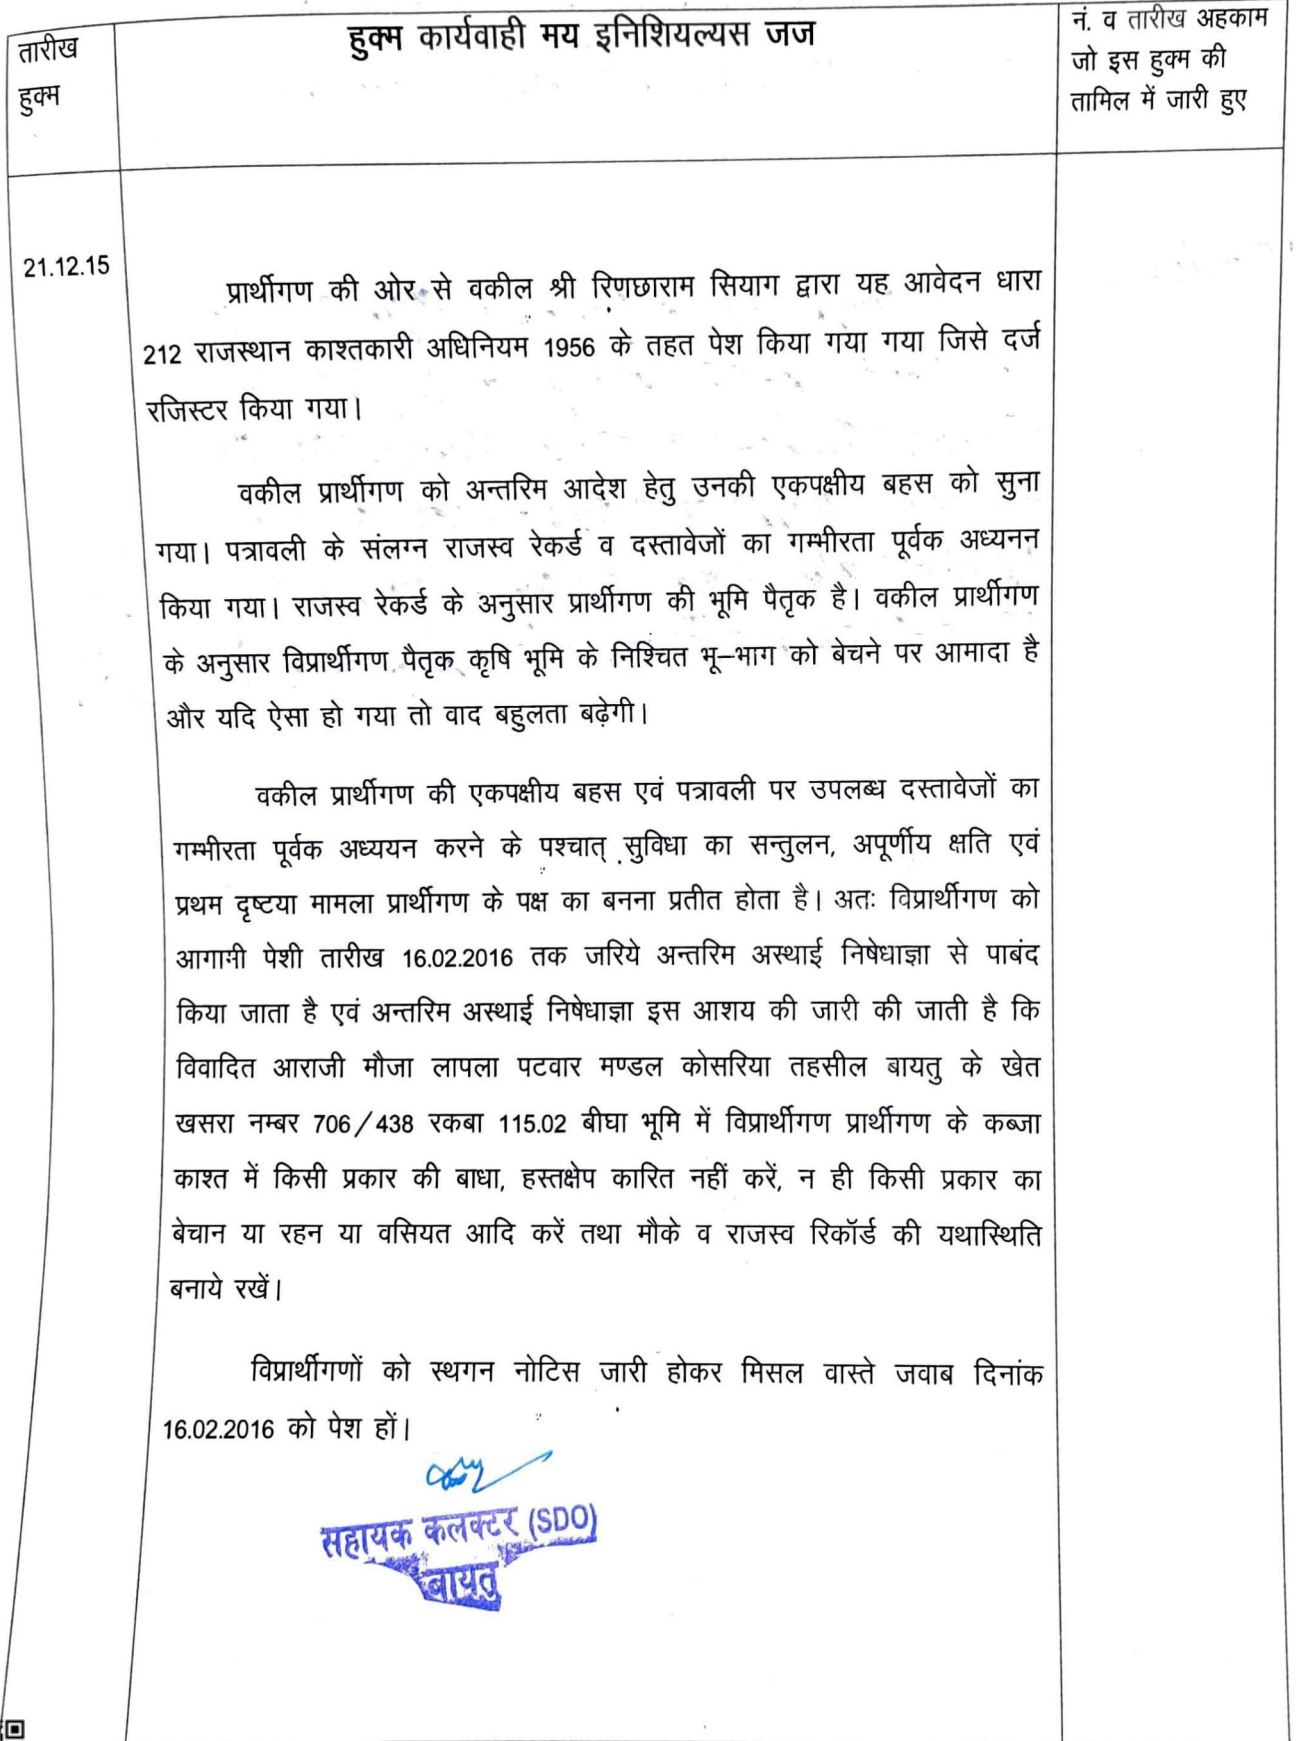 तारीख
हुक्म
हुक्म कार्यवाही मय इनिशियल्यस जज
नं. व तारीख अहकाम
जो इस हुक्म की
तामिल में जारी हुए
21.12.15
प्रार्थीगण की ओर से वकील श्री रिणछाराम सियाग द्वारा यह आवेदन धारा
212 राजस्थान काश्तकारी अधिनियम 1956 के तहत पेश किया गया गया जिसे दर्ज
रजिस्टर किया गया।
वकील प्रार्थीगण को अन्तरिम आदेश हेतु उनकी एकपक्षीय बहस को सुना
गया। पत्रावली के संलग्न राजस्व रेकर्ड व दस्तावेजों का गम्भीरता पूर्वक अध्यनन
किया गया। राजस्व रेकर्ड के अनुसार प्रार्थीगण की भूमि पैतृक है। वकील प्रार्थीगण
के अनुसार विप्रार्थीगण पैतृक कृषि भूमि के निश्चित भू–भाग को बेचने पर आमादा है
और यदि ऐसा हो गया तो वाद बहुलता बढ़ेगी।
वकील प्रार्थीगण की एकपक्षीय बहस एवं पत्रावली पर उपलब्ध दस्तावेजों का
गम्भीरता पूर्वक अध्ययन करने के पश्चात् सुविधा का सन्तुलन, अपूर्णीय क्षति एवं
प्रथम दृष्टया मामला प्रार्थीगण के पक्ष का बनना प्रतीत होता है। अतः विप्रार्थीगण को
आगामी पेशी तारीख 16.02.2016 तक जरिये अन्तरिम अस्थाई निषेधाज्ञा से पाबंद
किया जाता है एवं अन्तरिम अस्थाई निषेधाज्ञा इस आशय की जारी की जाती है कि
विवादित आराजी मौजा लापला पटवार मण्डल कोसरिया तहसील बायतु के खेत
खसरा नम्बर 706/438 रकबा 115.02 बीघा भूमि में विप्रार्थीगण प्रार्थीगण के कब्जा
काश्त में किसी प्रकार की बाधा, हस्तक्षेप कारित नहीं करें, न ही किसी प्रकार का
बेचान या रहन या वसियत आदि करें तथा मौके व राजस्व रिकॉर्ड की यथास्थिति
बनाये रखें।
विप्रार्थीगणों को स्थगन नोटिस जारी होकर मिसल वास्ते जवाब दिनांक
16.02.2016 को पेश हों।
सहायक कलक्टर (SDO)
बायतु